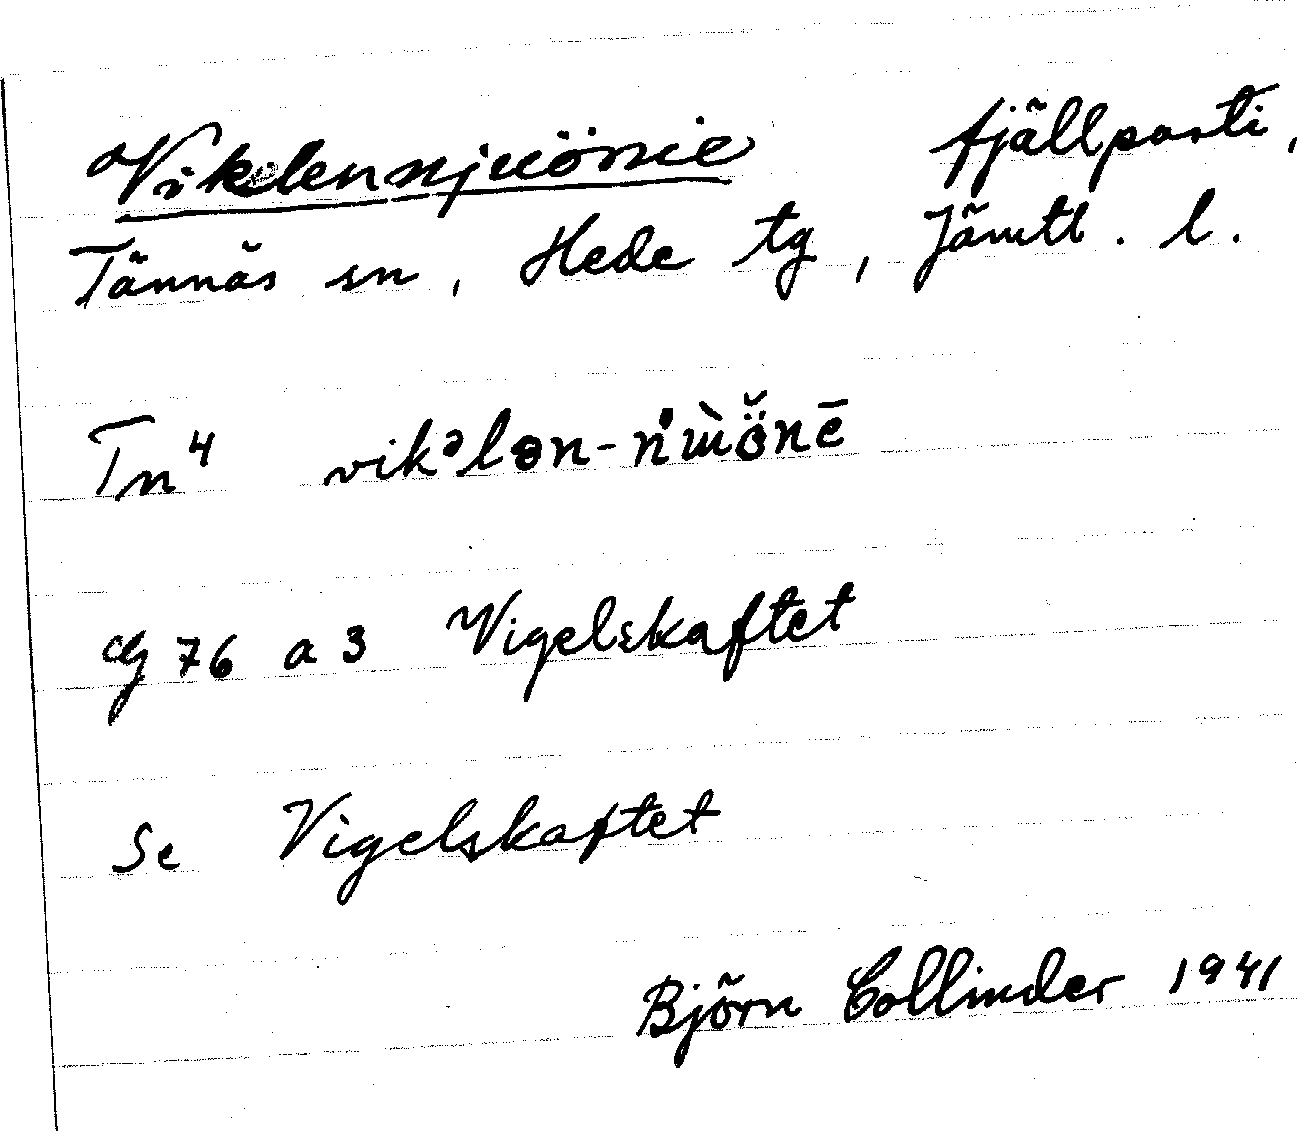 Vikelennjuönie fjällparti,
Tännäs sn, Hede tg, Jämtl. l.
Tn⁴ vikᵊlɵn-
G 76 a 3 Vigelskaftet
Se Vigelskaftet
Björn Collinder 1941